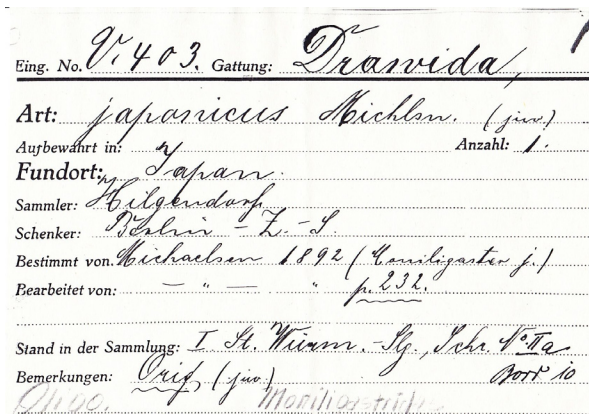 Eing. No. V. 403. Gattung: Drawida,
Art: japonicus Michlsn. (juv.)
Aufbewahrt in: Anzahl: 1.
Fundort: Japan.
Sammler: Hilgendorf
Schenker: Berlin - Z. - S.
Bestimmt von: Michaelsen 1892 (Moniligaster j.)
Bearbeitet von: — " — " p. 232.
Stand in der Sammlung: I St. Würm. - Slg., Schr. No IIa
Bemerkungen: Orig (juv) Bord 10
Oligo. Moniligastridae